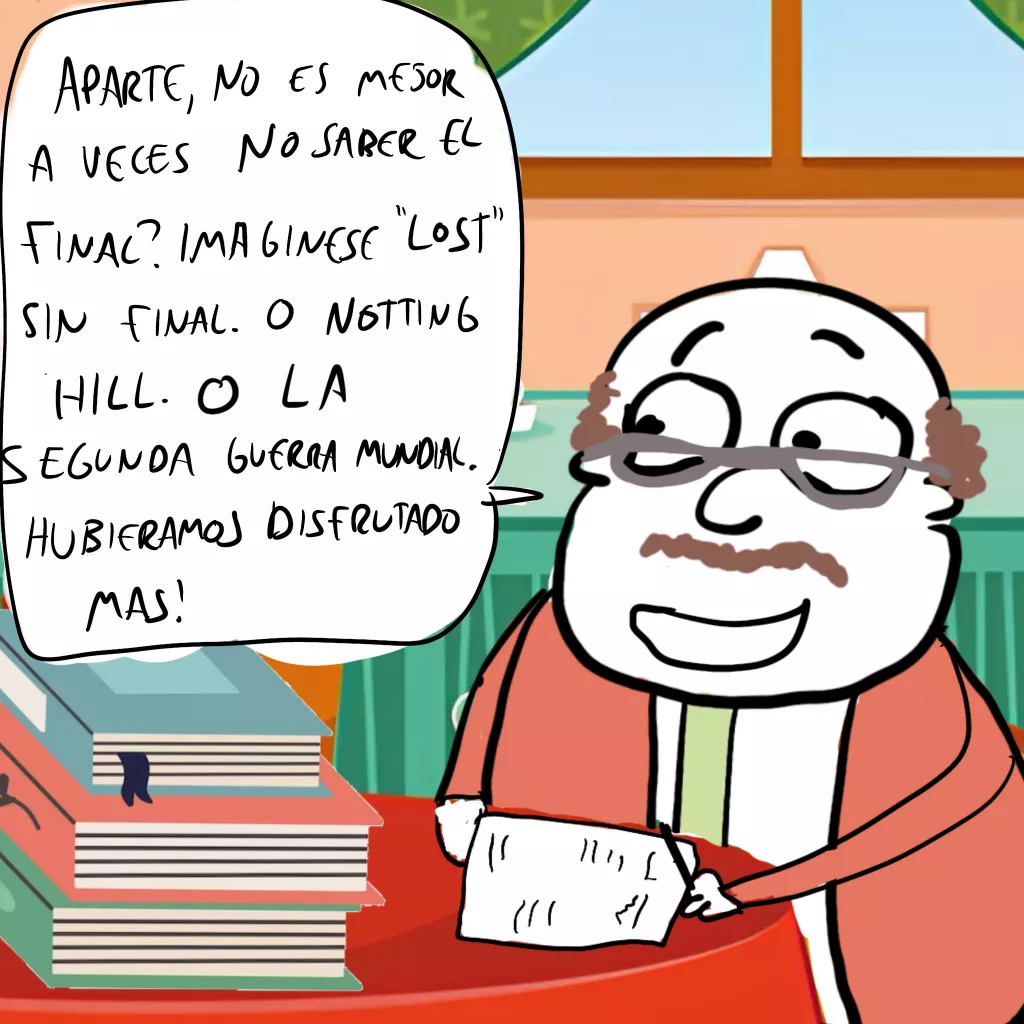 APARTE, NO ES MEJOR
A VECES NO SABER EL
FINAL? IMAGINESE "LOST"
SIN FINAL. O NOTTING
HILL. O LA
SEGUNDA GUERRA MUNDIAL.
HUBIERAMOS DISFRUTADO
MAS!